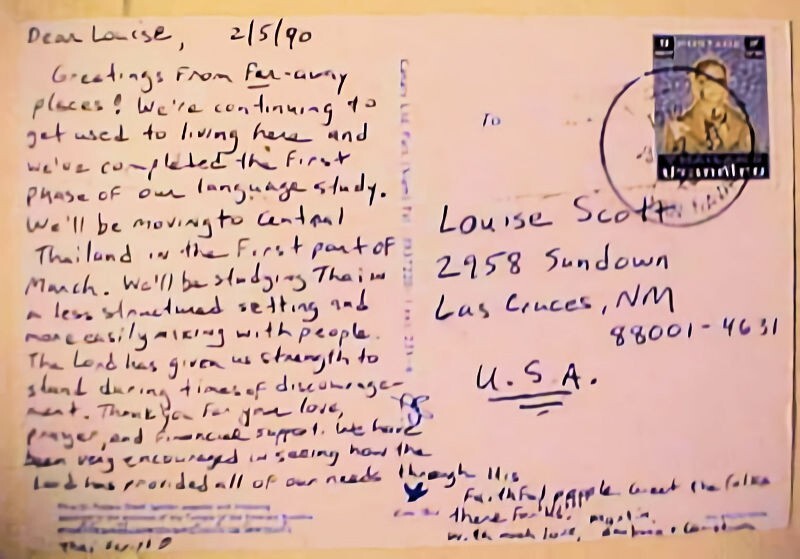 Dear Louise, 2/5/90
Greetings from far-away
places! We're continuing to
get used to living here and
we've completed the first
phase of our language study.
We'll be moving to central
Thailand in the first part of
March. We'll be studying Thai in
a less structured setting and
more easily mixing with people.
The Lord has given us strength to
stand during times of discourage-
ment. Thank you for your love,
prayer, and financial support. We have
been very encouraged in seeing how the
Lord has provided all of our needs through His
faithful people
there for us.
with much love,
To
Louise Scott
2958 Sundown
Las Cruces, NM
88001-4631
U.S.A.
POSTAGE
THAILAND